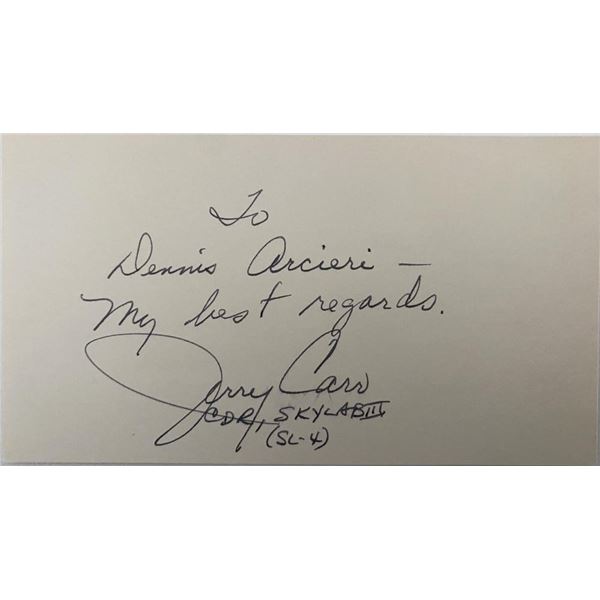 To
Dennis Arcieri —
My best regards.
Jerry Carr
CDR, SKYLAB III
(SL-4)